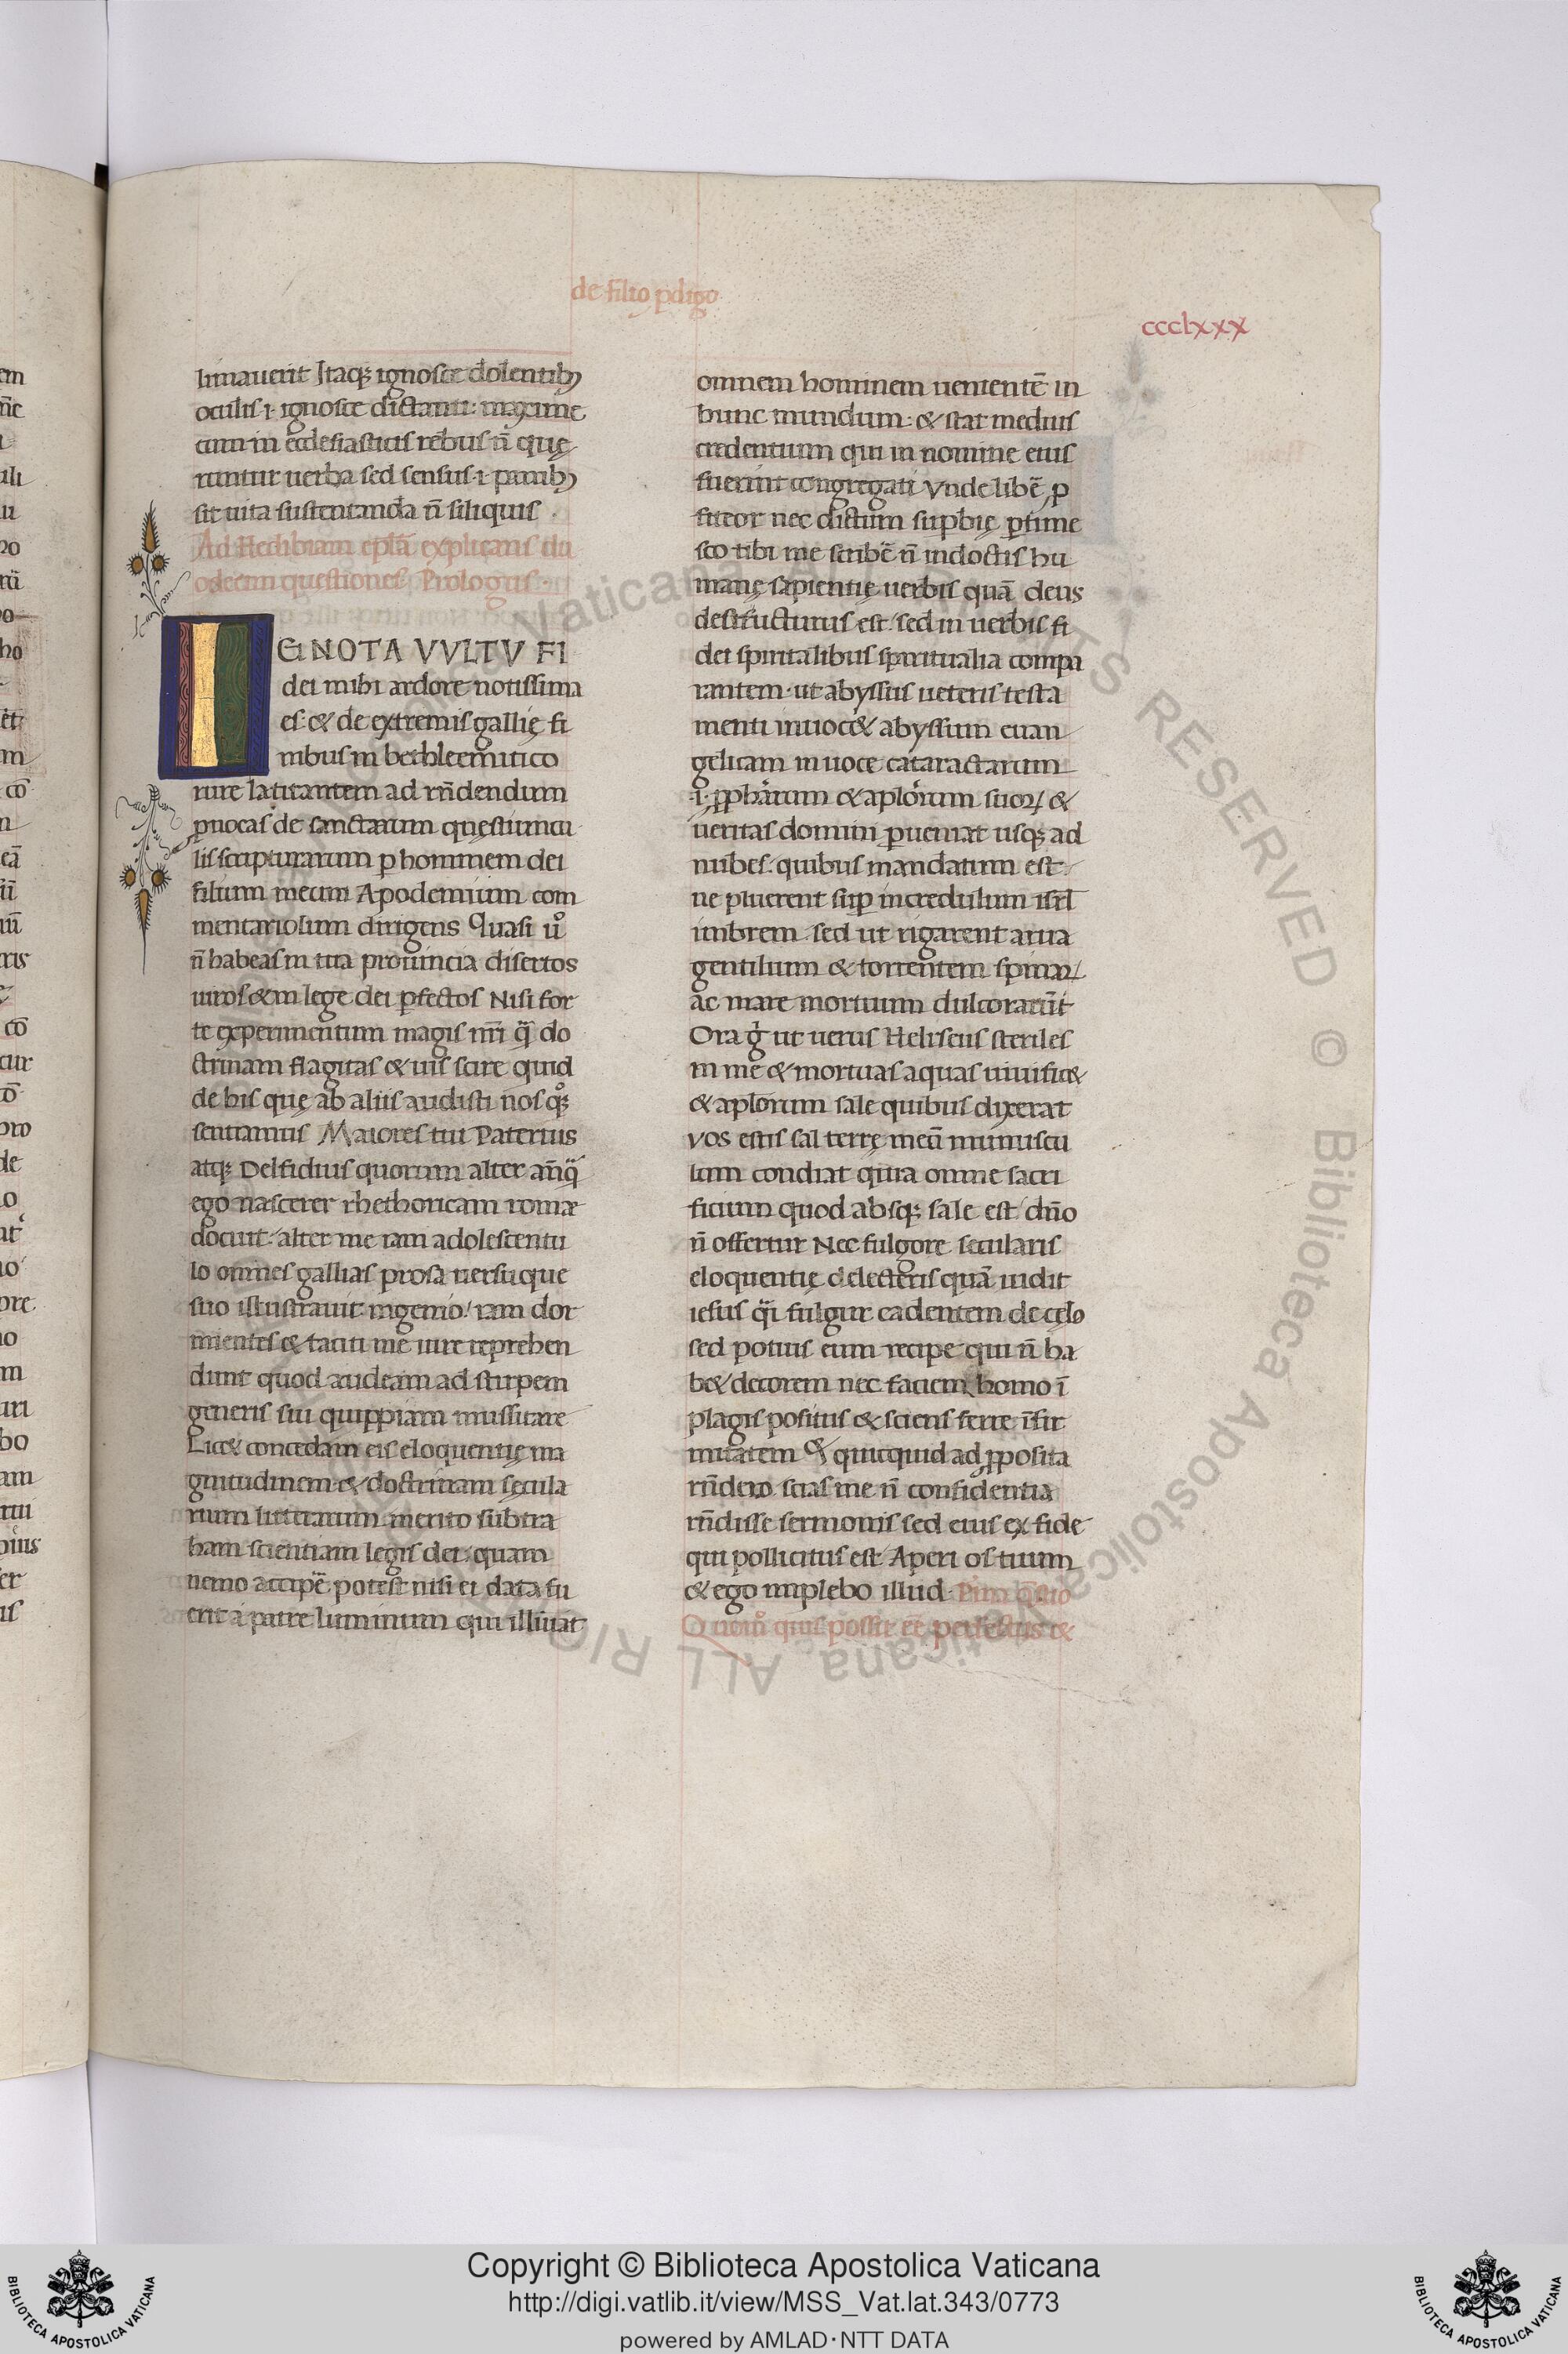 de filio ꝓdigo
ccclxxx
limauerit Itaqꝫ ignosce dolentibꝫ
oculis .i. ignosce dictanti: maxime
cum in ecclesiasticis rebus n̄ quę
runtur uerba sed sensus .i. panibꝫ
sit uita sustentanda n̄ siliquis .
Ad Hedibiam epl̄a explicans du
odecim questiones. Prologus .
IGNOTA VVLTV FI
dei mihi ardore notissima
es: & de extremis gallię fi
nibus in bethleemitico
rure latitantem ad rn̄dendum
ꝓuocas de sanctarum questiuncu
lis scripturarum ꝑ hominem dei
filium meum Apodemium com
mentariolum dirigens Quasi uͦ
n̄ habeas in tua prouincia disertos
uiros & in lege dei ꝑfectos Nisi for
te experimentum magis nr̄i q̄ do
ctrinam flagitas & uis scire quid
de his quę ab aliis audisti nos qͦꝫ
sentiamus Maiores tui Paterius
atqꝫ Delfidius quorum alter an̄q̄
ego nascerer rhethoricam romæ
docuit: alter me iam adolescentu
lo omnes gallias prosa uersuque
suo illustrauit ingenio: iam dor
mientes & taciti me iure reprehen
dunt quod audeam ad stirpem
generis sui quippiam mussitare
Lic& concedam eis eloquentię ma
gnitudinem & doctrinam sęcula
rium litterarum merito subtra
ham scientiam legis dei: quam
nemo accipe̅ potest nisi ei data fu
erit a patre luminum qui illūinat
omnem hominem uenientē in
hunc mundum: & stat medius
credentium qui in nomine eius
fuerint congregati Vnde libe̅ ꝓ
fiteor nec dictum suꝑbię ꝑtime
sco tibi me scribe̅ n̄ in doctis hu
manę sapientię uerbis quā deus
destructurus est: sed in uerbis fi
dei spiritalibus spiritualia compa
rantem: ut abyssus ueteris testa
menti inuoc& abyssum euan
gelicam in uoce cataractarum
.i. ꝓphārum & aplōrum suoꝝ &
ueritas domini ꝑueniat usqꝫ ad
nubes: quibus mandatum est
ne pluerent suꝑ incredulum isrl̄
imbrem sed ut rigarent arua
gentilium & torrentem spinaꝝ
ac mare mortuum dulcorarūt
Ora gͥ ut uerus Heliseus steriles
in me & mortuas aquas uiuific&
& aplorum sale quibus dixerat
vos estis sal terrę meū munuscu
lum condiat quia omne sacri
ficium quod absqꝫ sale est dn̄o
n̄ offertur Nec fulgore secularis
eloquentię delecteris quā uidit
iesus qͣi fulgur cadentem de cęlo
sed potius eum recipe qui n̄ ha
b& decorem nec faciem homo ī
plagis positus & sciens ferre īfir
mitatem Et quicquid ad ꝓposita
rn̄dero scias me n̄ confidentia
rn̄disse sermonis sed eius ex fide
qui pollicitus est: Aperi os tuum
& ego implebo illud. Prīa q̄stio
Quomͦ quis possit ēē perfectus &
Copyright © Biblioteca Apostolica Vaticana
http://digi.vatlib.it/view/MSS_Vat.lat.343/0773
powered by AMLAD·NTT DATA
BIBLIOTECA APOSTOLICA VATICANA
BIBLIOTECA APOSTOLICA VATICANA